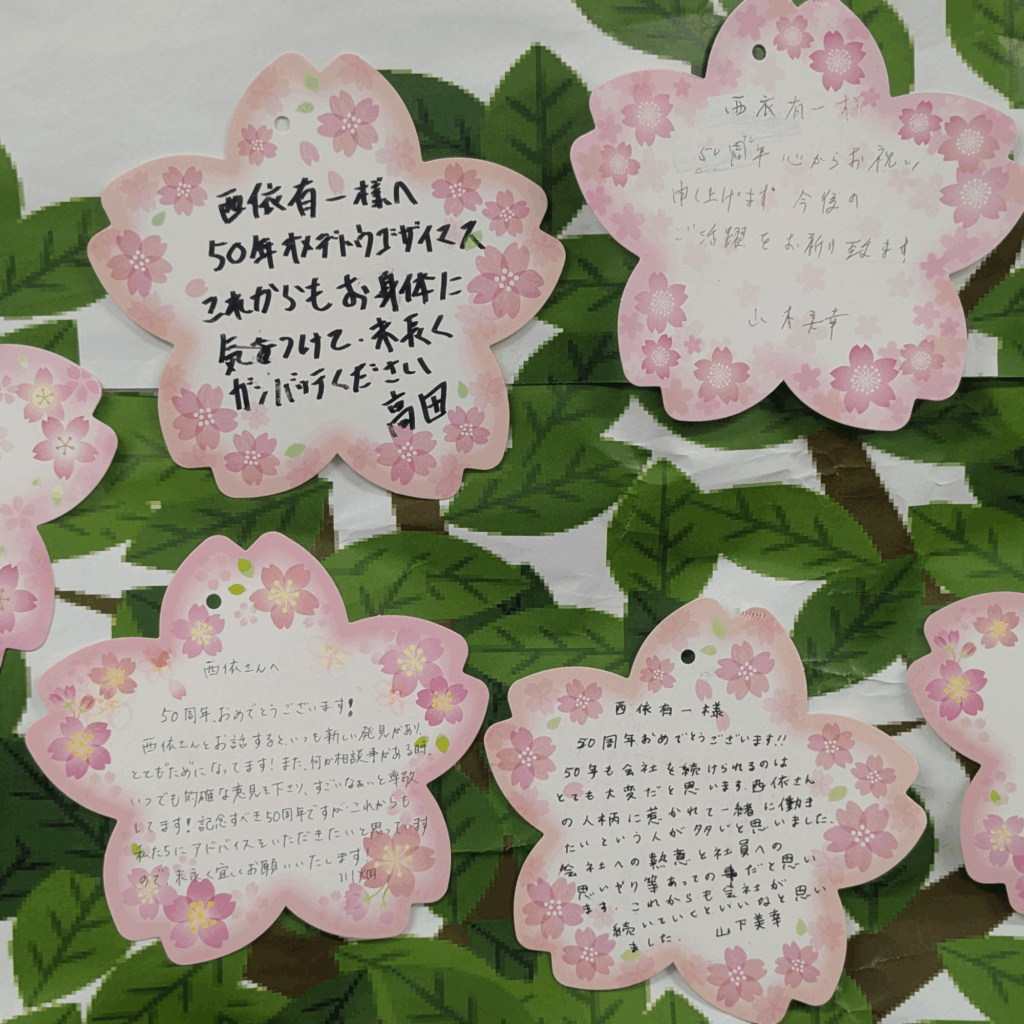 西依有一様へ
50年オメデトウゴザイマス
これからもお身体に
気をつけて、末長く
ガンバッテください
高田
西依有一様
50周年 心からお祝い
申し上げます 今後の
ご活躍をお祈り致ます
山木美幸
西依さんへ
50周年、おめでとうございます!
西依さんとお話すると、いつも新しい発見があり、
とてもためになってます!また、何か相談事がある時、
いつでも的確な意見を下さり、すごいなぁっと尊敬
してます!記念すべき50周年ですが、これからも
私たちにアドバイスをいただきたいと思っています
ので、末永く宜しくお願いいたします
川畑
西依有一様
50周年おめでとうございます!!
50年も会社を続けられるのは
とても大変だと思います。西依さん
の人柄に惹かれて一緒に働き
たいという人が多いと思いました。
会社への熱意と社員への
思いやり等あっての事だと思い
ます。これからも会社が
続いていくといいなと思い
ました。 山下美幸